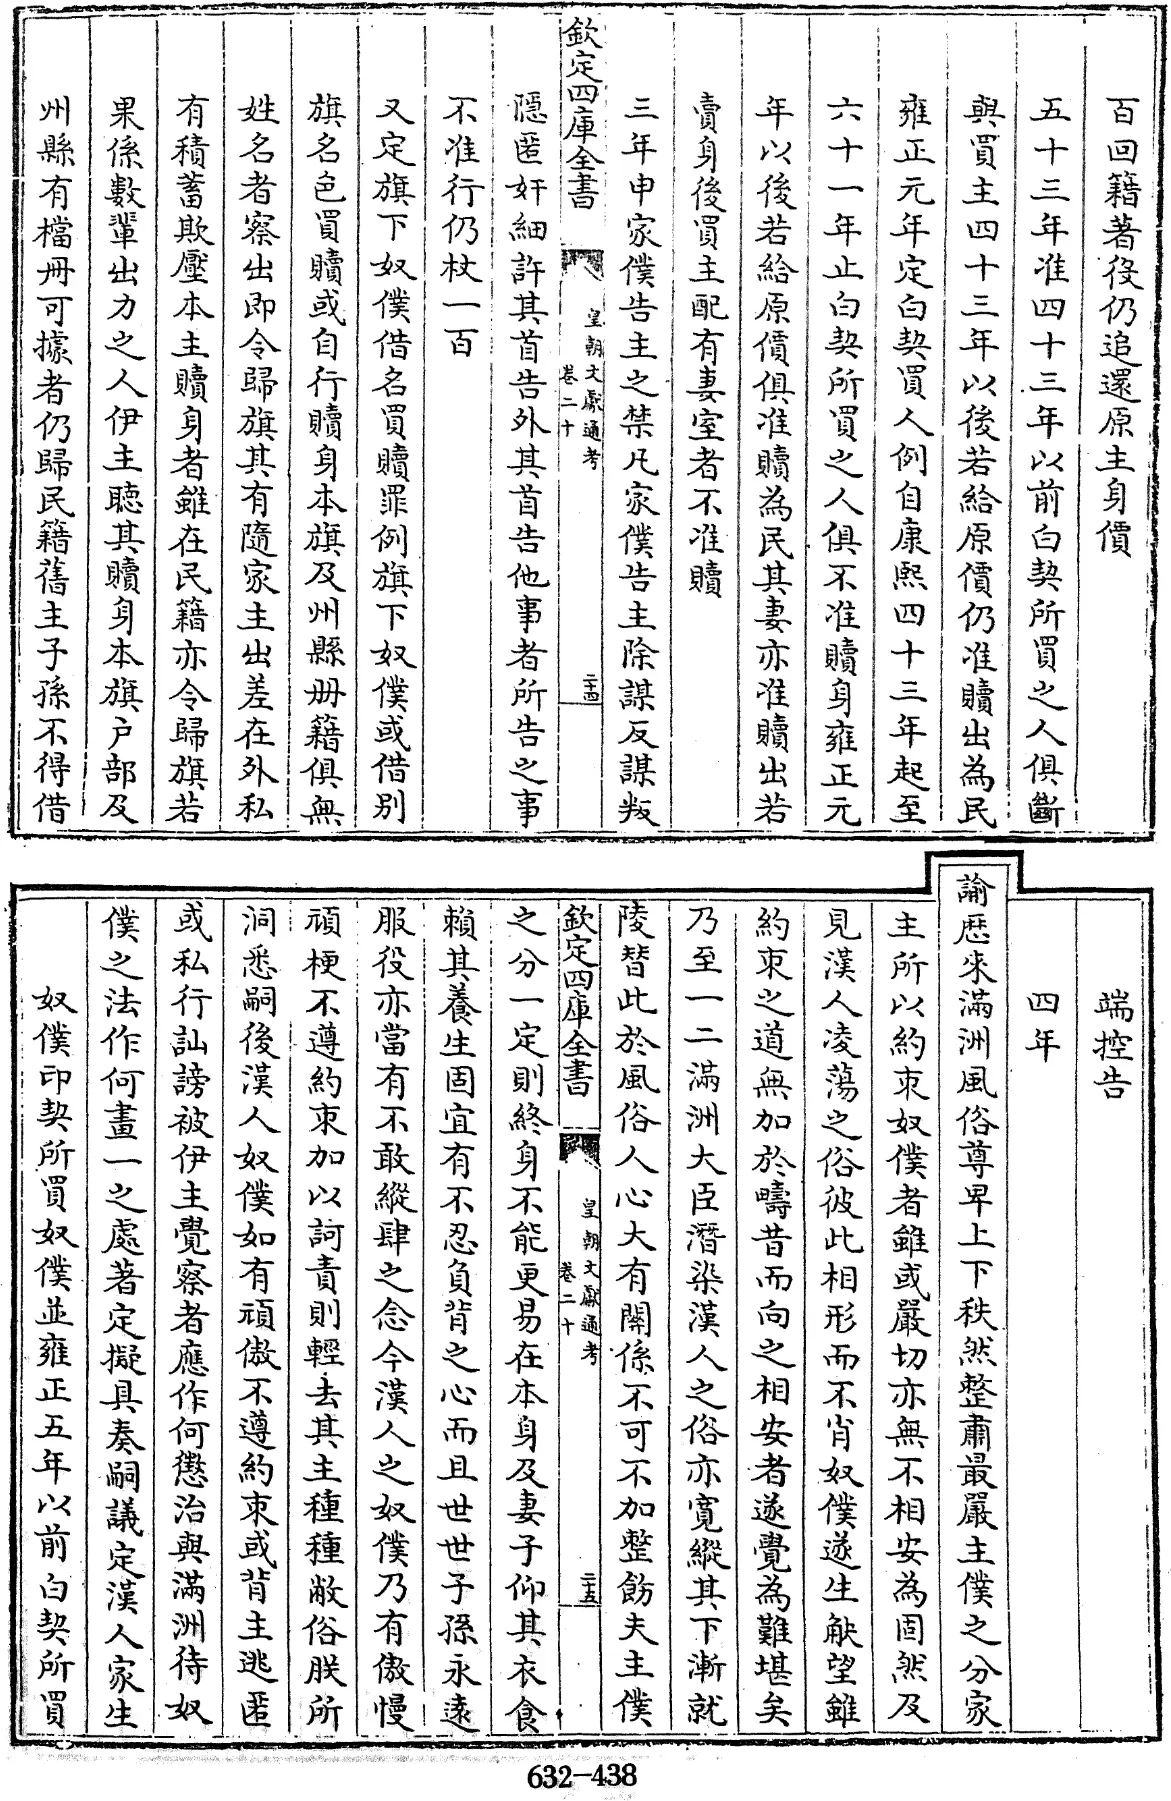 百回籍著役仍追還原主身價
五十三年准四十三年以前白契所買之人俱斷
與買主四十三年以後若給原價仍准贖出為民
雍正元年定白契買人例自康熙四十三年起至
六十一年止白契所買之人俱不准贖身雍正元
年以後若給原價俱准贖為民其妻亦准贖出若
賣身後買主配有妻室者不准贖
三年申家僕告主之禁凡家僕告主除謀反謀叛
欽定四庫全書
皇朝文獻通考
卷二十
二十四
隱匿奸細許其首告外其首告他事者所告之事
不准行仍杖一百
又定旗下奴僕借名買贖罪例旗下奴僕或借別
旗名色買贖或自行贖身本旗及州縣册籍俱無
姓名者察出即令歸旗其有隨家主出差在外私
有積蓄欺壓本主贖身者雖在民籍亦令歸旗若
果係數輩出力之人伊主聽其贖身本旗户部及
州縣有檔册可據者仍歸民籍舊主子孫不得借
端控告
四年
諭歷來滿洲風俗尊卑上下秩然整肅最嚴主僕之分家
主所以約束奴僕者雖或嚴切亦無不相安為固然及
見漢人凌蕩之俗彼此相形而不肖奴僕遂生觖望雖
約束之道無加於疇昔而向之相安者遂覺為難堪矣
乃至一二滿洲大臣潛染漢人之俗亦寬縱其下漸就
陵替此於風俗人心大有關係不可不加整飭夫主僕
欽定四庫全書
皇朝文獻通考
卷二十
二十五
之分一定則終身不能更易在本身及妻子仰其衣食
賴其養生固宜有不忍負背之心而且世世子孫永遠
服役亦當有不敢縱肆之念今漢人之奴僕乃有傲慢
頑梗不遵約束加以訶責則輕去其主種種敝俗朕所
洞悉嗣後漢人奴僕如有頑傲不遵約束或背主逃匿
或私行訕謗被伊主覺察者應作何懲治與滿洲待奴
僕之法作何畫一之處著定擬具奏嗣議定漢人家生
奴僕印契所買奴僕並雍正五年以前白契所買
632-438